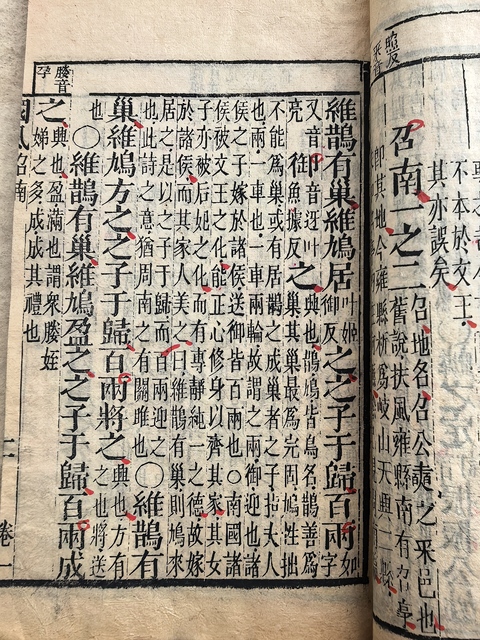 不本於文王
其亦誤矣
召南一之二
召地名召公奭之采邑也
舊說扶風雍縣南有召亭
即其地今雍縣析為岐山天興二
維鵲有巢維鳩居叶姬御反之之子于歸百兩如字
又音亮御音迓叶魚據反之興也鵲鳩皆鳥名鵲善為
巢其巢最為完固鳩性拙
不能為巢或有居鵲之成巢者之子指夫人
也兩一車也一車兩輪故謂之兩御迎也諸
侯之子嫁於諸侯送御皆百兩也○南國諸
侯被文王之化能正心修身以齊其家其女
子亦被后妃之化而有專靜純一之德故嫁
於諸侯而其家人美之曰維鵲有巢則鳩來
居之是以之子于歸而百兩迎之
也此詩之意猶周南之有關雎也○維鵲有
巢維鳩方之之子于歸百兩將之興也方有之也將送
也○維鵲有巢維鳩盈之之子于歸百兩成
之興也盈滿也謂眾媵姪
娣之多成成其禮也
媵音孕
國風召南
二
卷一